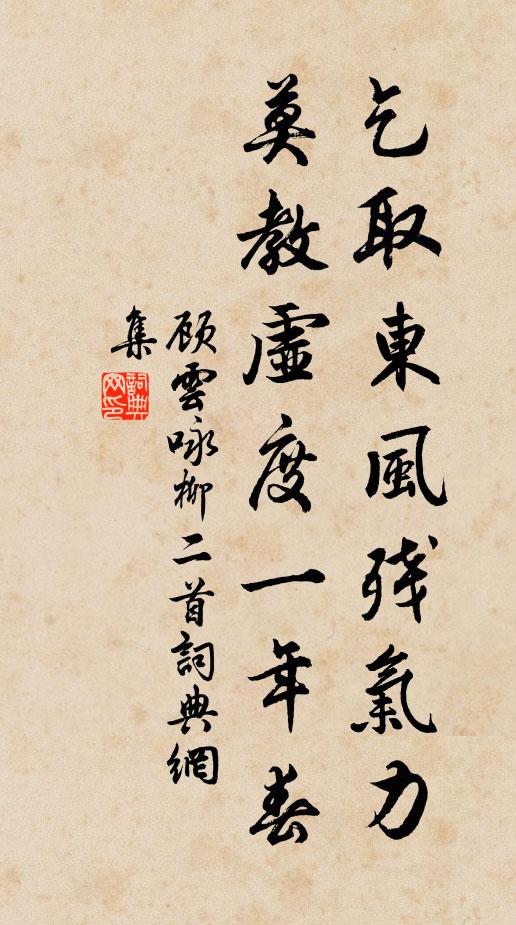 乞取東風残氣力
莫教虛度一年春
顾雲咏柳二首詞典網
集
詞典
网印